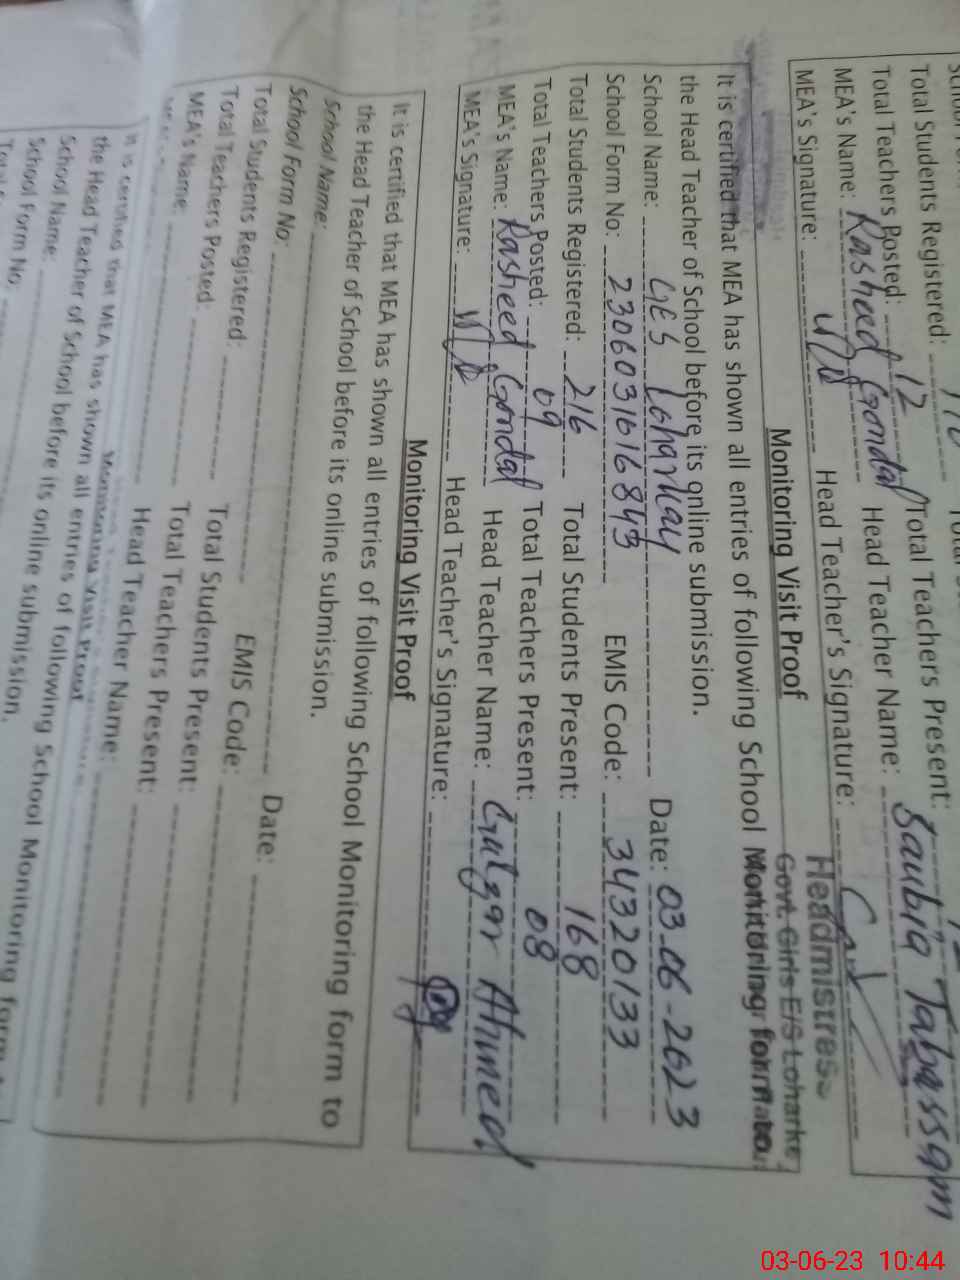 Total Students Registered:
Total Teachers Posted: 12 Total Teachers Present: 12
MEA's Name: Rasheed Gondal Head Teacher Name: Saubia Tabassam
MEA's Signature: Head Teacher's Signature:
Headmistress
Govt. Girls E/S Loharke
Monitoring Visit Proof
It is certified that MEA has shown all entries of following School Monitoring form to
the Head Teacher of School before its online submission.
School Name: GES Loharkay Date: 03-06-2023
School Form No: 2306031616843 EMIS Code: 34320133
Total Students Registered: 216 Total Students Present: 168
Total Teachers Posted: 09 Total Teachers Present: 08
MEA's Name: Rasheed Gondal Head Teacher Name: Gulzar Ahmed
MEA's Signature: Head Teacher's Signature:
Monitoring Visit Proof
It is certified that MEA has shown all entries of following School Monitoring form to
the Head Teacher of School before its online submission.
School Name: Date:
School Form No: EMIS Code:
Total Students Registered: Total Students Present:
Total Teachers Posted: Total Teachers Present:
MEA's Name: Head Teacher Name:
Monitoring Visit Proof
It is certified that MEA has shown all entries of following School Monitoring form
the Head Teacher of School before its online submission.
School Name:
School Form No:
03-06-23 10:44